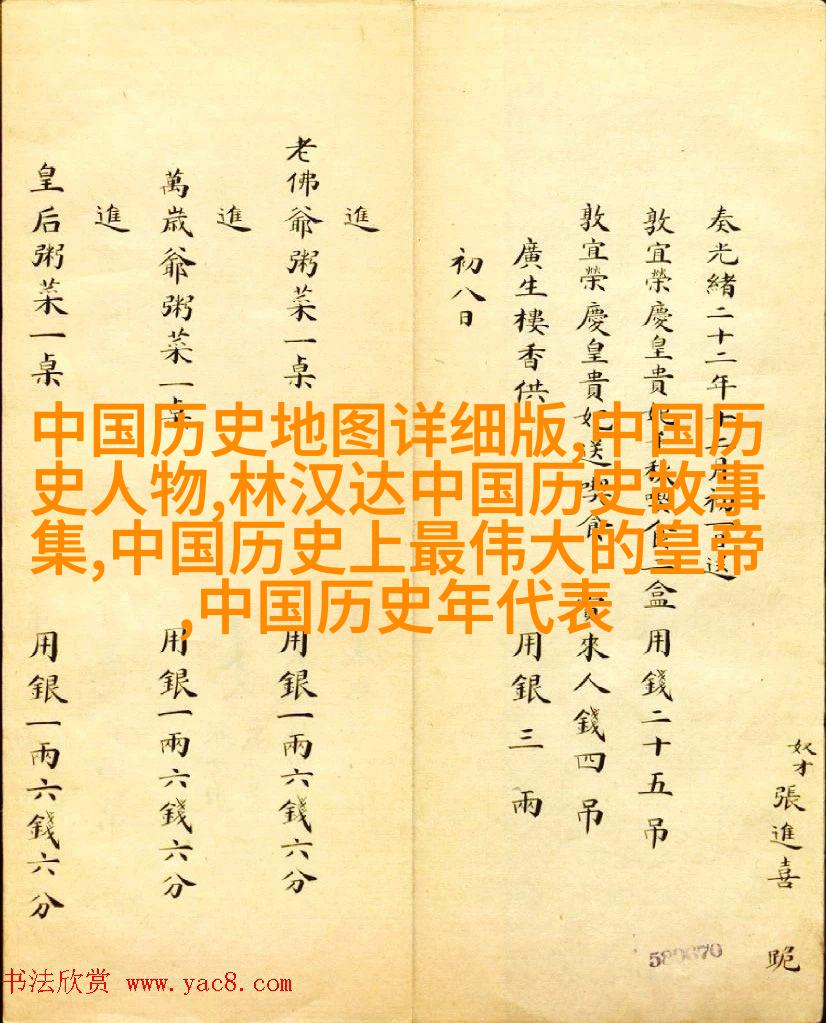 奴才張進喜 跪
奏光緒二十二年十二月初一日送
敦宜榮慶皇貴妃千秋喫食二盒用錢二十五吊
敦宜榮慶皇貴妃送喫食 賞來人錢四吊
廣生樓香供 用銀三兩
初八日
進
老佛爺粥菜一桌 用銀一兩六錢六分
進
萬歲爺粥菜一桌 用銀一兩六錢六分
進
皇后粥菜一桌 用銀一兩六錢六分
中国历史地图详细版,中国历
史人物,林汉达中国历史故事
集,中国历史上最伟大的皇帝
,中国历史年代表
书法欣赏 www.yac8.com